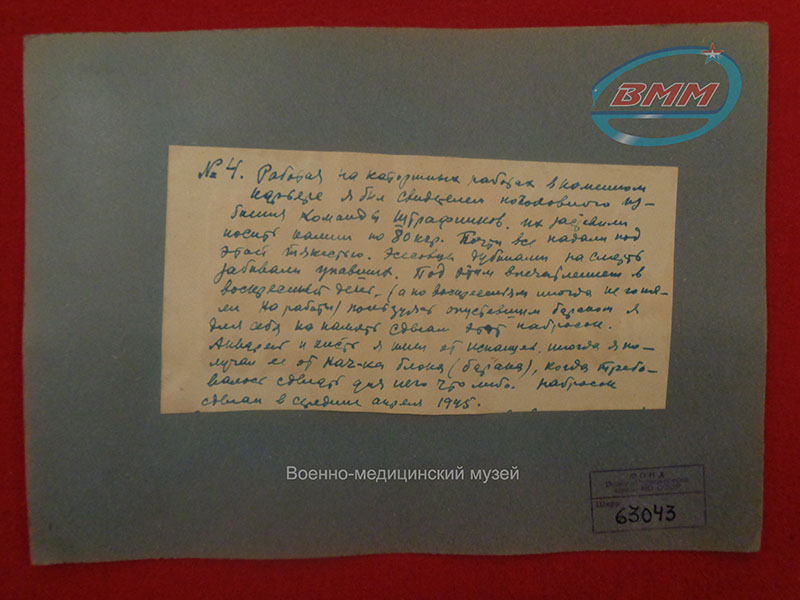 ВММ
№ 4. Работая на каторжных работах в каменном
карьере я был свидетелем поголовного из-
биения команды штрафников. их заставили
носить камни по 80 кгр. Почти все падали под
этой тяжестью. Эсесовцы дубинами на смерть
забивали упавших. Под этим впечатлением в
воскресный день, (а по воскресеньям иногда не гоня-
ли на работы) пользуясь опустевшим бараком я
для себя на память сделал этот набросок.
Акварель и кисть я имел от испанцев, иногда я по-
лучал ее от нач-ка блока (барака), когда требо-
валось сделать для него что либо. набросок
сделан в середине апреля 1945.
Военно-медицинский музей
ФОНД
63043